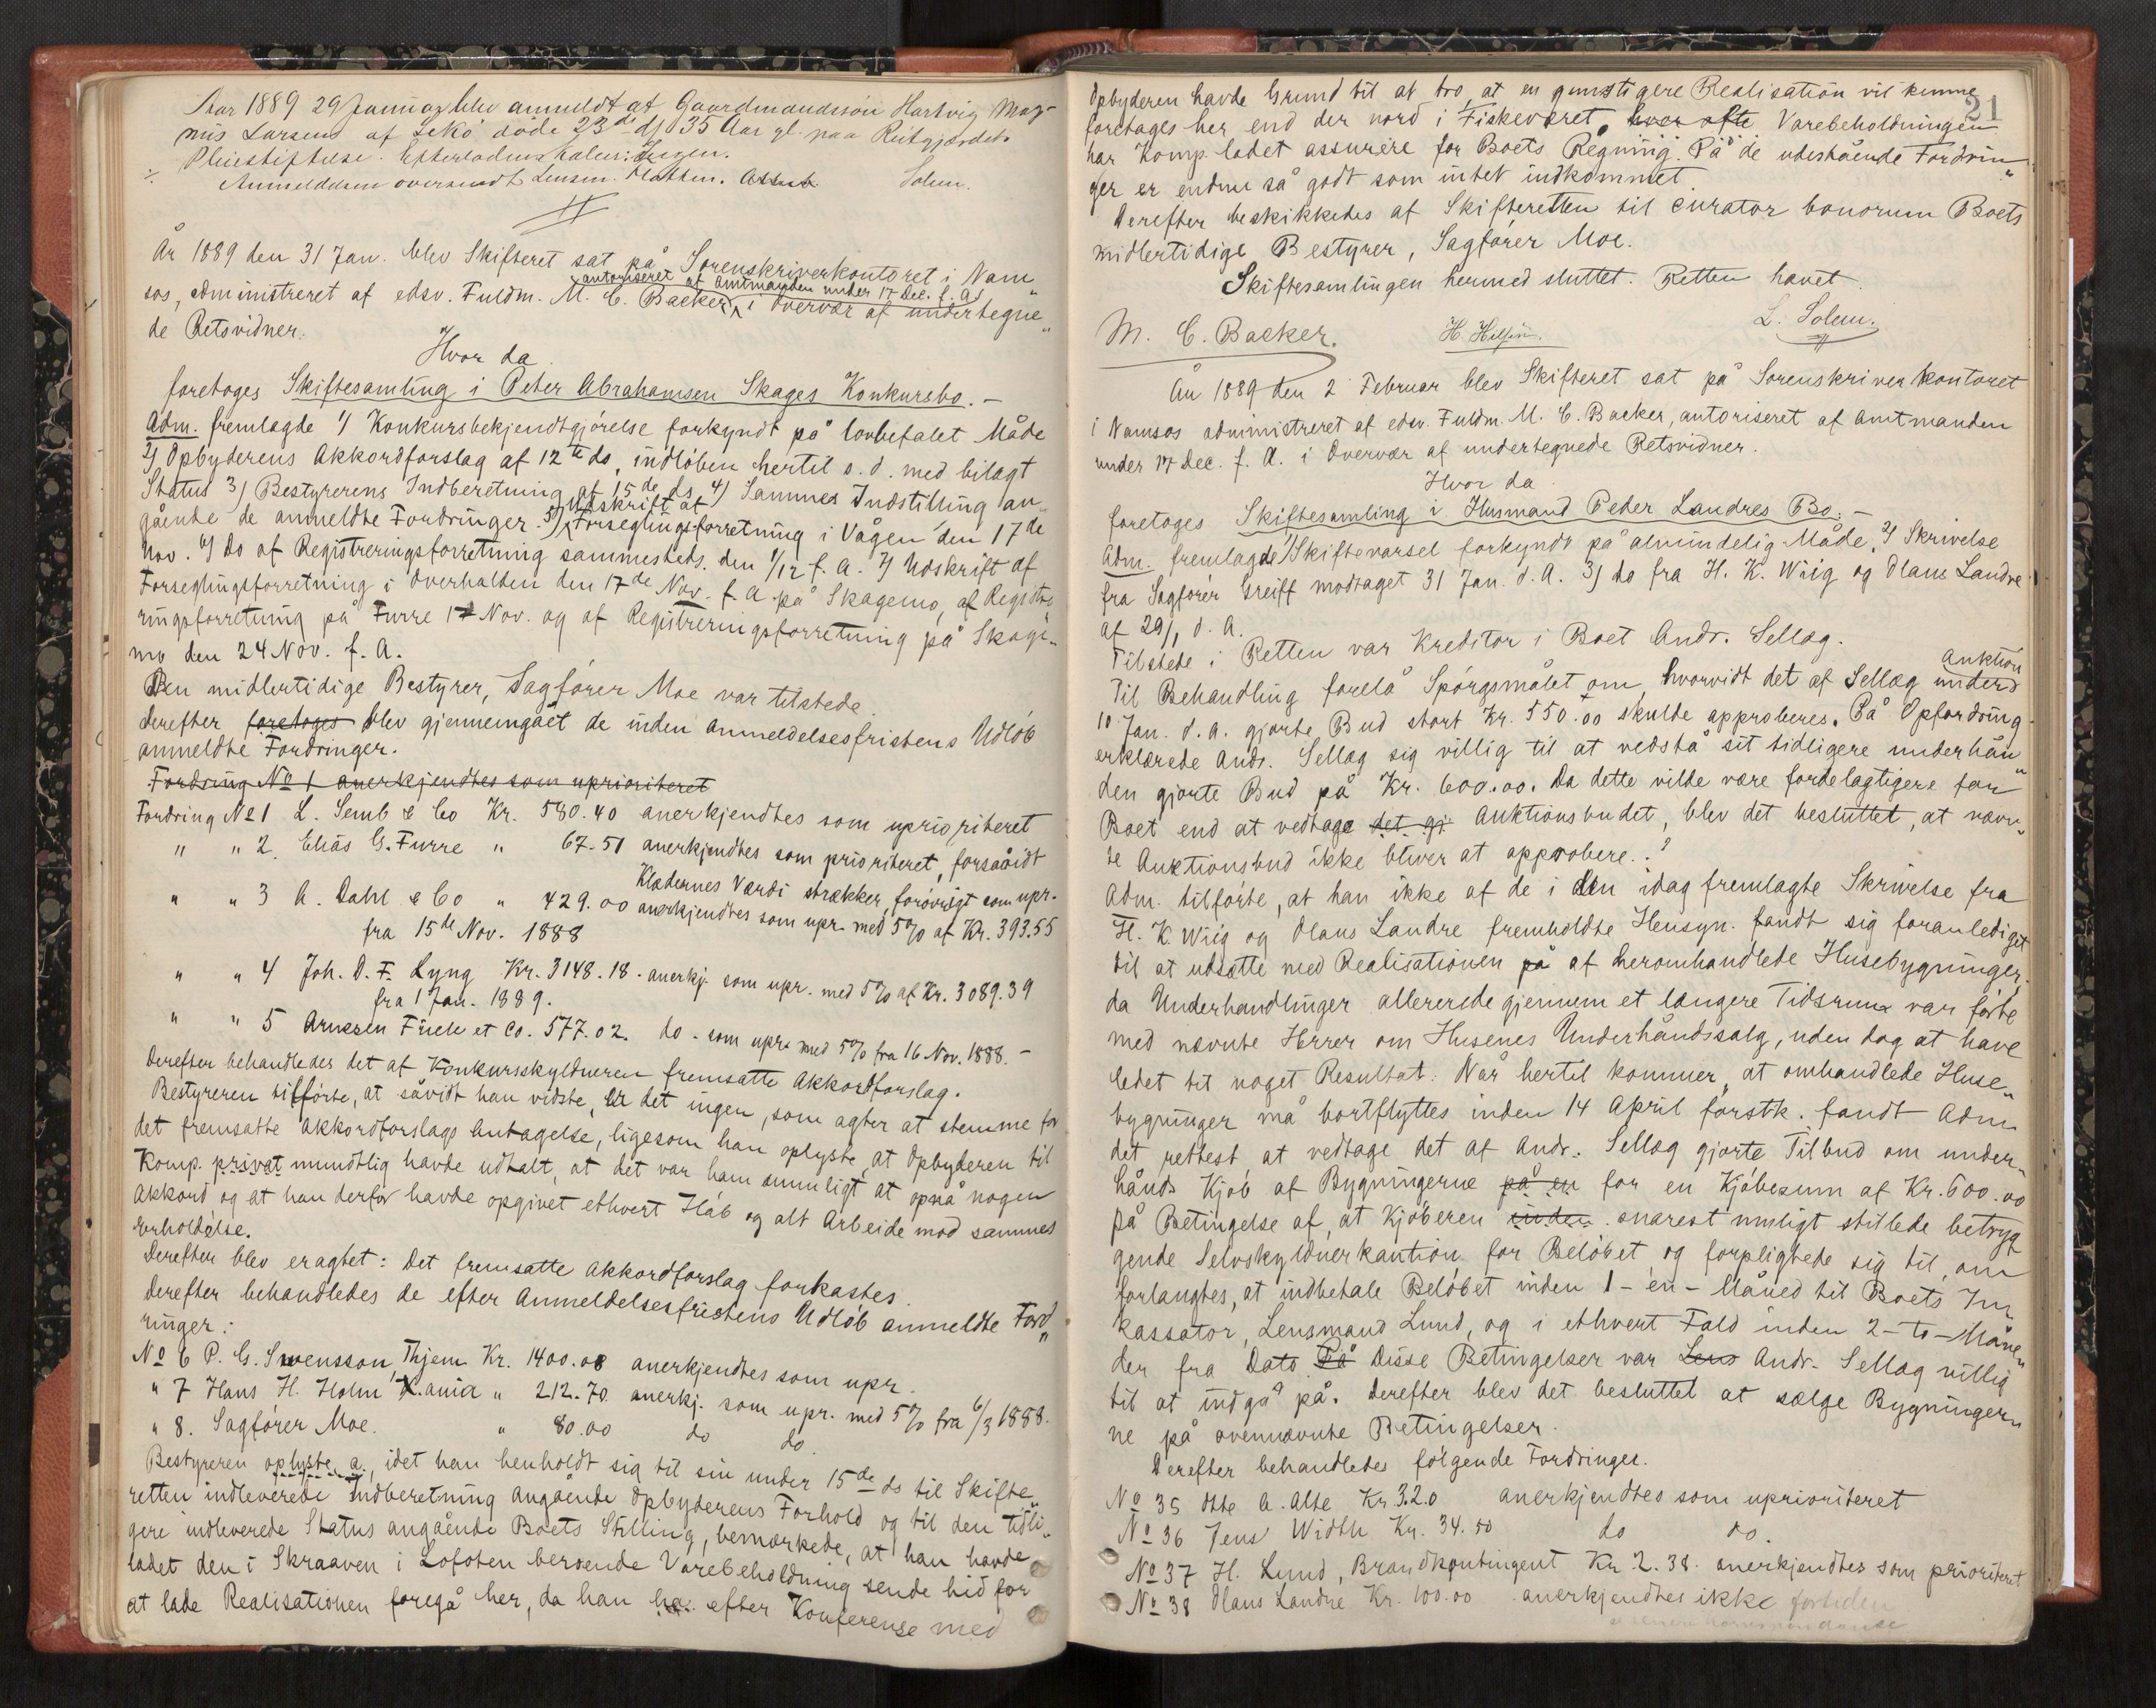 Aar 1889 29 Januar blev anmeldt at Gaardmandssøn Hartvig Mag-
nus Larsens af Lekø døde 23de ds 35 Aar gl. paa Reitgjærdets
Pleiestiftelse. Efterladenskaber: Ingen.
Anmeldelsen oversendt Lensm. Solem.
År 1889 den 31 Jan. blev Skifteret sat på Sorenskriverkontoret i Nam„
autoriseret af Amtmanden under 17 Dec. f. A.
sos, administreret af edsv. Fuldm. M. C. Backer, i Overvær af undertegne„
de Retsvidner.
Hvor da
foretoges Skiftesamling i Peter Abrahamsen Skages Konkursbo. –
Adm. fremlagde 1) Konkursbekjendtgjørelse forkyndt på lovbefalet Måde
2) Opbyderens Akkordforslag af 12te ds, indløben hertil s. d. med bilagt
Status 3) Bestyrerens Indberetning af 15de ds 4) Sammes Indstilling an„
Udskrift af
gående de anmeldte Fordringer. 5) Forseglingsforretning i Vågen den 17de
Nov. 6) Do af Registreringsforretning sammesteds. den 1/12 f. A. 7) Udskrift af
Forseglingsforretning i Overhalden den 17de Nov. f. A. på Skagemo, af Registre„
ringsforretning på Furre 17 Nov. og af Registreringsforretning på Skage„
mo den 24 Nov. f. A.
Den midlertidige Bestyrer, Sagfører Moe var tilstede.
Derefter foretoges blev gjennemgået de inden Anmeldelsesfristens Udløb
anmeldte Fordringer.
Fordring No 1 anerkjendtes som uprioriteret
Fordring No 1 L. Semb & Co Kr. 580.40 anerkjendtes som uprioriteret
" " 2. Elias G. Furre " 67.51 anerkjendtes som prioriteret, forsåvidt
Klædernes Værdi strækker, forøvrigt som upr.
" " 3 A. Dahl & Co " 429.00 anerkjendtes som upr. med 5% af Kr. 393.55
fra 15de Nov. 1888
" " 4 Joh. D. F. Lyng Kr. 3148.18. anerkj. som upr. med 5% af Kr. 3089.39
fra 1 Jan. 1889.
" " 5 Arnesen et Co. 577.02. do. som upr. med 5% fra 16 Nov. 1888. –
Derefter behandledes det af Konkursskyldneren fremsatte Akkordforslag.
Bestyreren tilførte, at såvidt han vidste, er det ingen, som agter at stemme for
det fremsatte Akkordforslags Antagelse, ligesom han oplyste, at Opbyderen til
Komp. privat mundtlig havde udtalt, at det var ham umuligt at opnå nogen
Akkord og at han derfor havde opgivet ethvert Håb og alt Arbeide mod sammes
Erholdelse.
Derefter blev eragtet: Det fremsatte Akkordforslag forkastes.
Derefter behandledes de efter Anmeldelsesfristens Udløb anmeldte Ford„
ringer:
No 6 P. G. Svensson, Thjem Kr. 1400.00 anerkjendtes som upr.
" 7 Hans H. Holm, X.ania " 212.70 anerkj. som upr. med 5% fra 6/3 1888.
" 8. Sagfører Moe. " 80.00 do do.
Bestyreren oplyste, a., idet han henholdt sig til sin under 15de ds til Skifte„
retten indleverede Indberetning angående Opbyderens Forhold og til den tidli„
gere indleverede Status angående Boets Stilling, bemærkede, at han havde
ladet den i Skraaven i Lofoten beroende Varebeholdning sende hid for
at lade Realisationen foregå her, da han efter Konferense med
21
Opbyderen havde Grund til at tro, at en gunstigere Realisation vil kunne
foretages her end der nord i Fiskeværet, Varebeholdningen
har Komp. ladet assurere for Boets Regning. På de udestående Fordrin„
ger er endnu så godt som intet indkommet.
Derefter beskikkedes af Skifteretten til curator bonorum Boets
midlertidige Bestyrer, Sagfører Moe.
Skiftesamlingen hermed sluttet. Retten hævet.
M. C. Backer. L. Solem.
År 1889 den 2 Februar blev Skifteret sat på Sorenskriverkontoret
i Namsos administreret af edsv. Fuldm. M. C. Backer, autoriseret af Amtmanden
under 17 Dec. f. A. i Overvær af undertegnede Retsvidner.
Hvor da
foretoges Skiftesamling i Husmand Peder Landres Bo. –
Adm. fremlagde 1) Skiftevarsel forkyndt på almindelig Måde, 2) Skrivelse
fra Sagfører Greiff modtaget 31 Jan. d. A. 3) do fra H. K. Wiig og Olaus Landre
af 29/1 d. A.
Tilstede i Retten var Kreditor i Boet Andr. Sellæg.
Auktion
Til Behandling forelå Spørgsmålet om, hvorvidt det af Sellæg under
10 Jan. d. A. gjorte Bud stort Kr. 550.00 skulde approberes. På Opfordring
erklærede Andr. Sellæg sig villig til at vedstå sit tidligere underhån„
den gjorte Bud på Kr. 600.00. Da dette vilde være fordelagtigere for
Boet end at vedtage det gj Auktionsbudet, blev det besluttet, at nævn„
te Auktionsbud ikke bliver at approbere.
Adm. tilførte, at han ikke af de i den idag fremlagte Skrivelse fra
H. K. Wiig og Olaus Landre fremholdte Hensyn fandt sig foranlediget
til at udsætte med Realisationen på af heromhandlede Husebygninger,
da Underhandlinger allerede gjennem et længere Tidsrum var førte
med nævnte Herrer om Husenes Underhåndssalg, uden dog at have
ledet til noget Resultat. Når hertil kommer, at omhandlede Huse„
bygninger må bortflyttes inden 14 April førstk. fandt Adm.
det rettest at vedtage det af Andr. Sellæg gjorte Tilbud om under„
hånds Kjøb af Bygningerne på en for en Kjøbesum af Kr. 600.00
på Betingelse af, at Kjøberen inden snarest muligt stillede betryg„
gende Selvskyldnerkaution for Beløbet og forpligtede sig til, om
forlangtes, at indbetale Beløbet inden 1 – en – Måned til Boets In„
kassator, Lensmand Lund, og i ethvert Fald inden 2 – to – Måne„
der fra Dato. På Disse Betingelser var Lens Andr. Sellæg villig
til at indgå på. Derefter blev det besluttet at sælge Bygninger„
ne på ovennævnte Betingelser.
Derefter behandledes følgende Fordringer.
No 35 Otte A. Alte Kr. 3.20 anerkjendtes som uprioriteret
No 36 Jens Width Kr. 34.50 do do.
No 37 H. Lund, Brandkontingent Kr. 2.38. anerkjendtes som prioriteret
No 38 Olaus Landre Kr. 100.00 anerkjendtes ikke fortiden